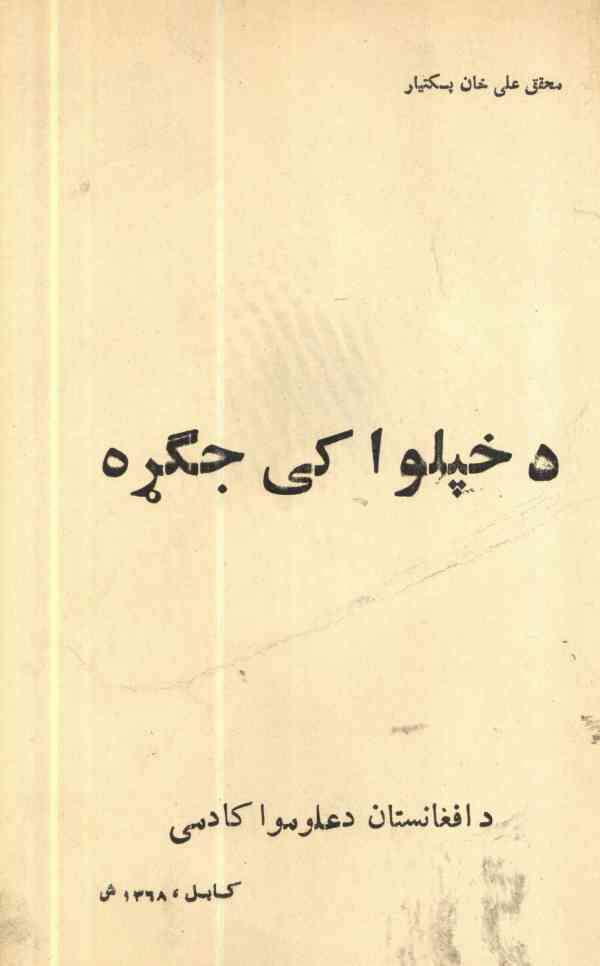 محقق علی خان پسکتیار
د خپلواکی جگړه
د افغانستان د علومو اکادمی
کابل، ۱۳۶۸ ش